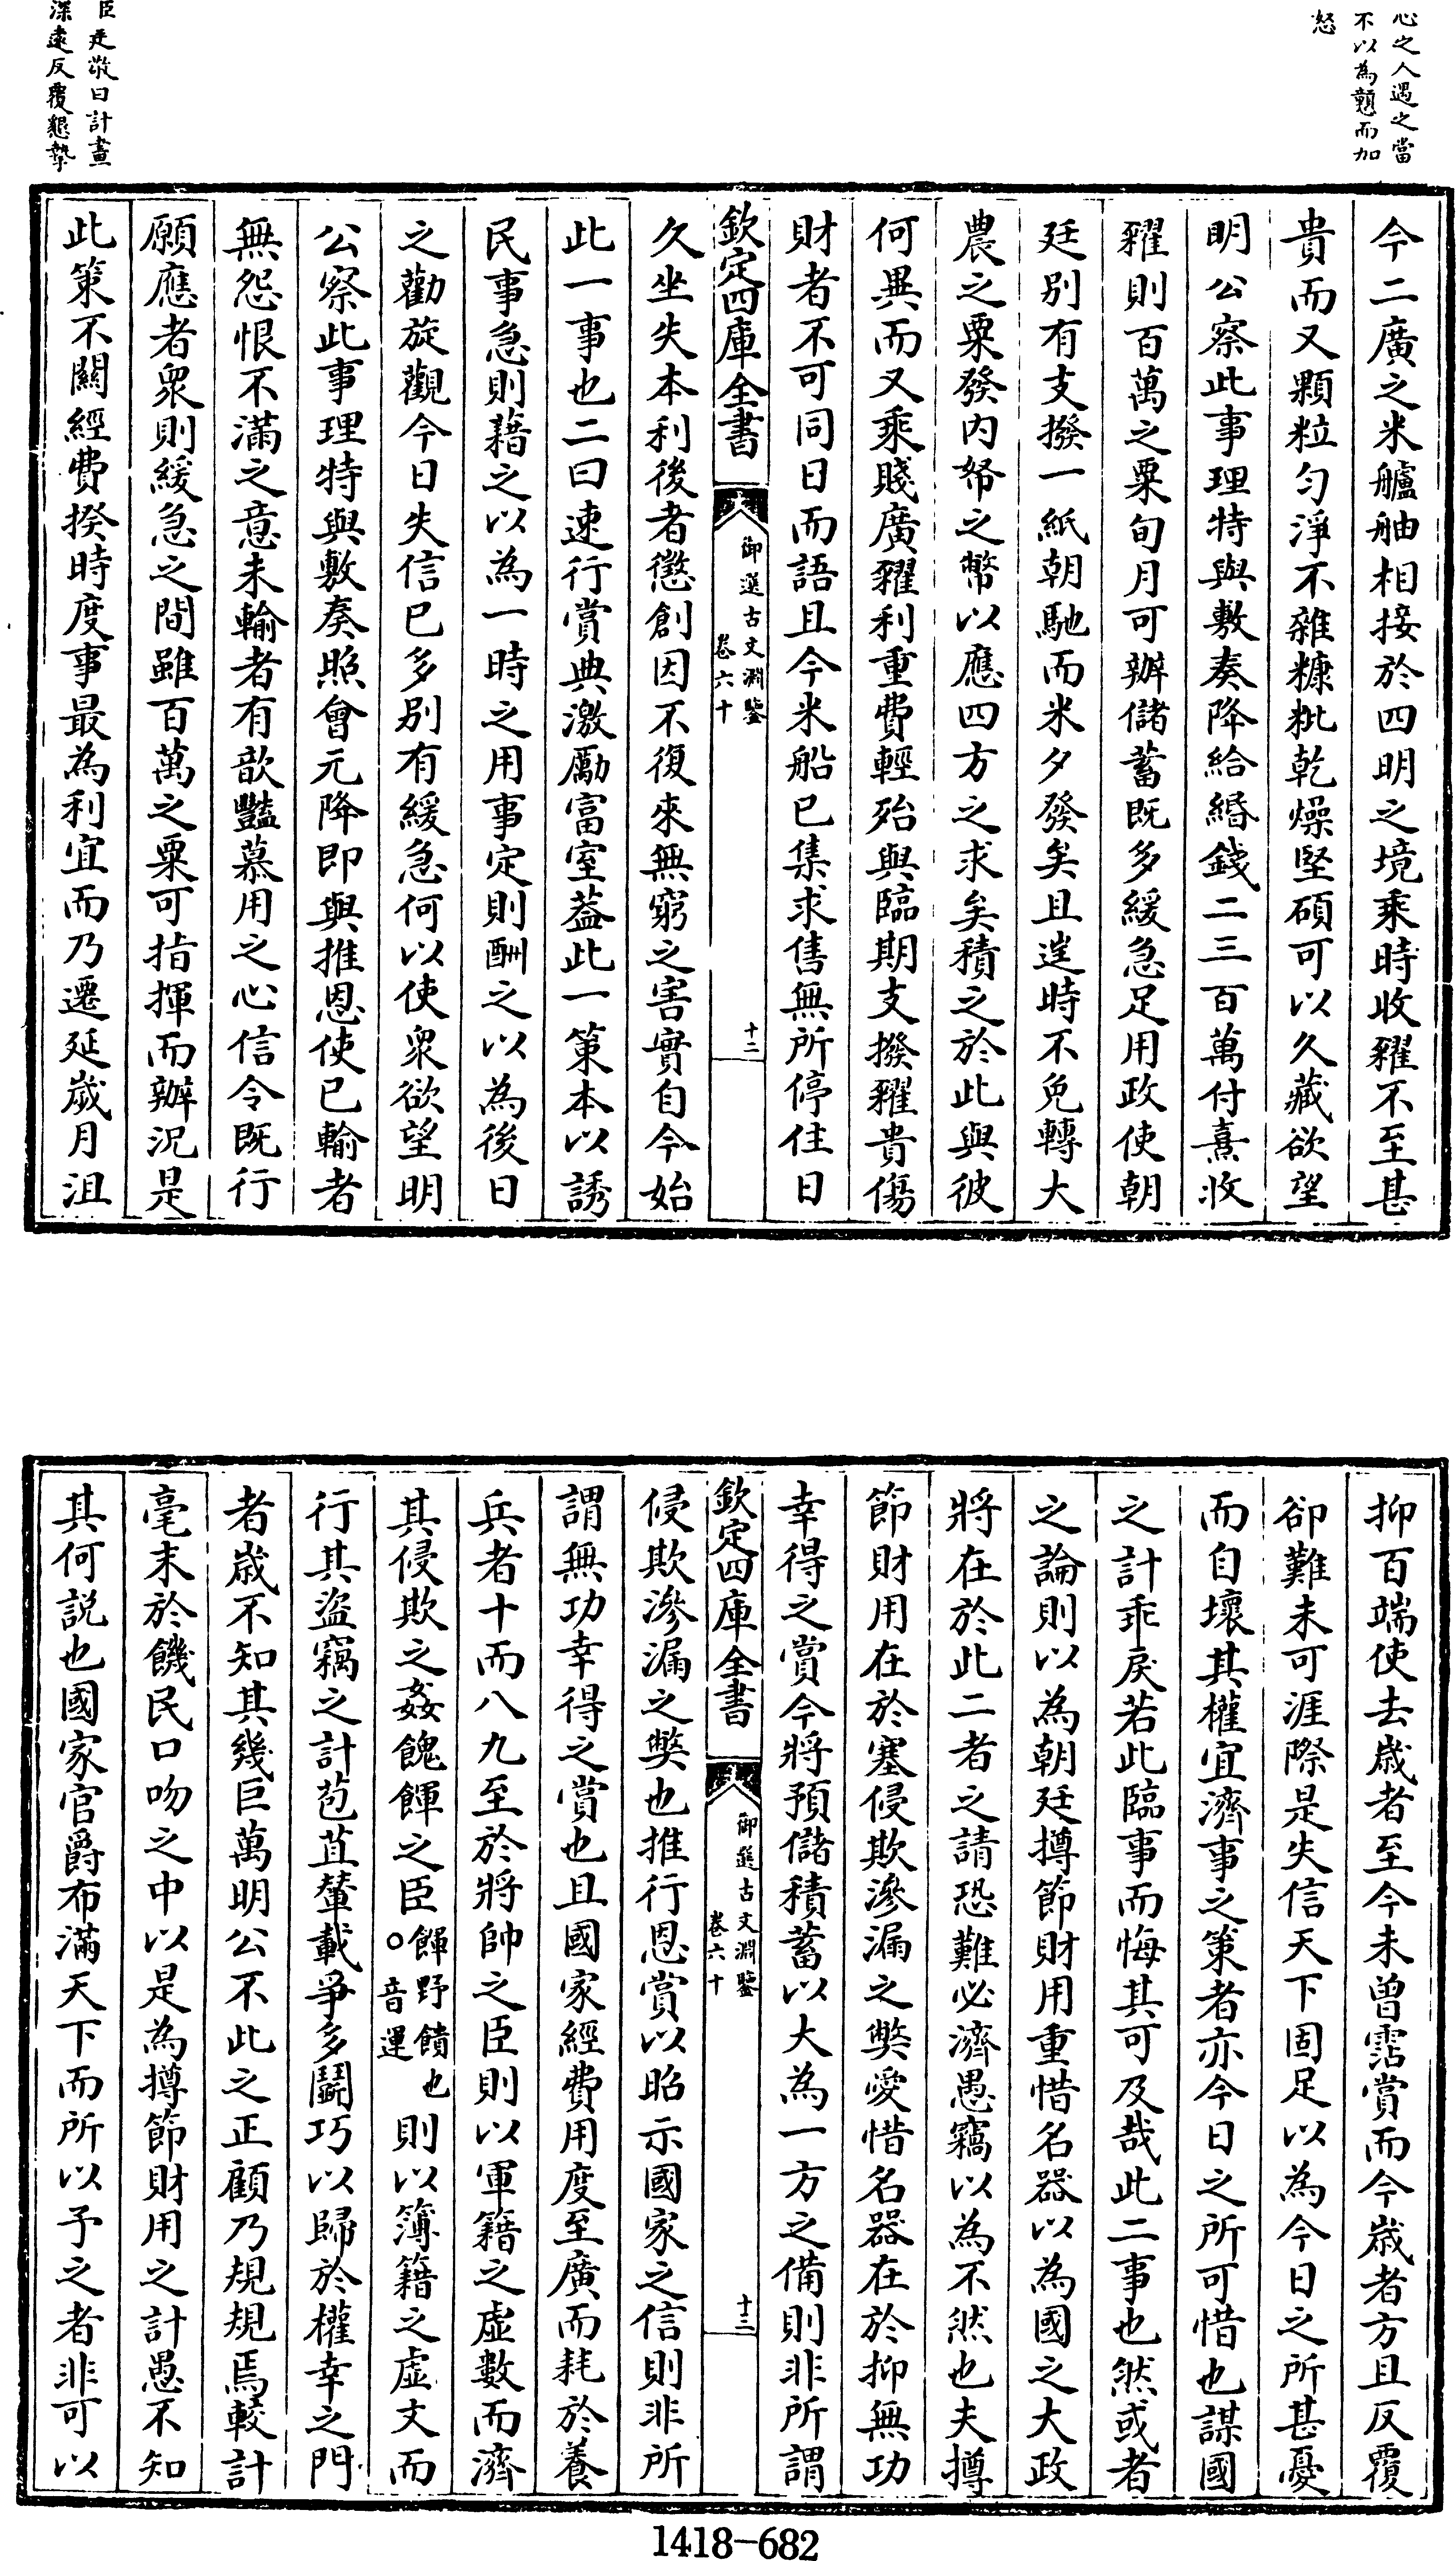 心之人遇之當
不以為顛而加
怒
臣廷敬曰計畫
深遠反覆懇摯
今二廣之米艫舳相接於四明之境乘時收糴不至甚
貴而又顆粒匀淨不雜糠粃乾燥堅碩可以久藏欲望
明公察此事理特與敷奏降給緡錢二三百萬付熹收
糴則百萬之粟旬月可辦儲蓄既多緩急足用政使朝
廷别有支撥一紙朝馳而米夕發矣且逹時不免轉大
農之粟發内帑之幣以應四方之求矣積之於此與彼
何異而又乘賤廣糴利重費輕殆與臨期支撥糴貴傷
財者不可同日而語且今米船已集求售無所停住日
欽定四庫全書
御選古文淵鑒
卷六十
十二
久坐失本利後者懲創因不復來無窮之害實自今始
此一事也二曰速行賞典激勵富室葢此一策本以誘
民事急則藉之以為一時之用事定則酬之以為後日
之勸旋觀今日失信已多别有緩急何以使衆欲望明
公察此事理特與敷奏照會元降即與推恩使已輸者
無怨恨不滿之意未輸者有歆豔慕用之心信令既行
願應者衆則緩急之間雖百萬之粟可指揮而辦況是
此策不闗經費揆時度事最為利宜而乃遷延歲月沮
抑百端使去歲者至今未曾霑賞而今歲者方且反覆
卻難未可涯際是失信天下固足以為今日之所甚憂
而自壞其權宜濟事之策者亦今日之所可惜也謀國
之計乖戾若此臨事而悔其可及哉此二事也然或者
之論則以為朝廷撙節財用重惜名器以為國之大政
將在於此二者之請恐難必濟愚竊以為不然也夫撙
節財用在於塞侵欺滲漏之獘愛惜名器在於抑無功
幸得之賞今將預儲積蓄以大為一方之備則非所謂
欽定四庫全書
御選古文淵鑒
卷六十
十三
侵欺滲漏之獘也推行恩賞以昭示國家之信則非所
謂無功幸得之賞也且國家經費用度至廣而耗於養
兵者十而八九至於將帥之臣則以軍籍之虛數而濟
其侵欺之姦餽餫之臣餫野饋也○音運則以簿籍之虛文而
行其盜竊之計苞苴輦載爭多鬭巧以歸於權幸之門
者歲不知其幾巨萬明公不此之正顧乃規規焉較計
毫末於饑民口吻之中以是為撙節財用之計愚不知
其何説也國家官爵布滿天下而所以予之者非可以
1418-682